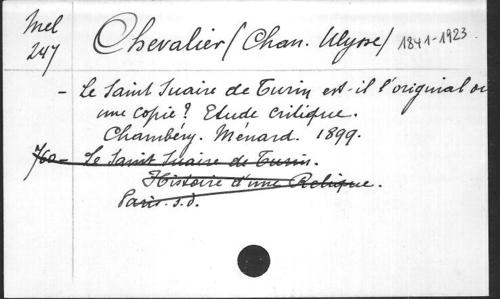 Mel
247
Chevalier (Chan. Ulysse) 1841-1923.
- Le Saint Suaire de Turin est-il l'original ou
une copie? Etude critique.
Chambéry. Ménard. 1899.
760 - Le Saint Suaire de Turin.
Histoire d'une Relique.
Paris. s.d.